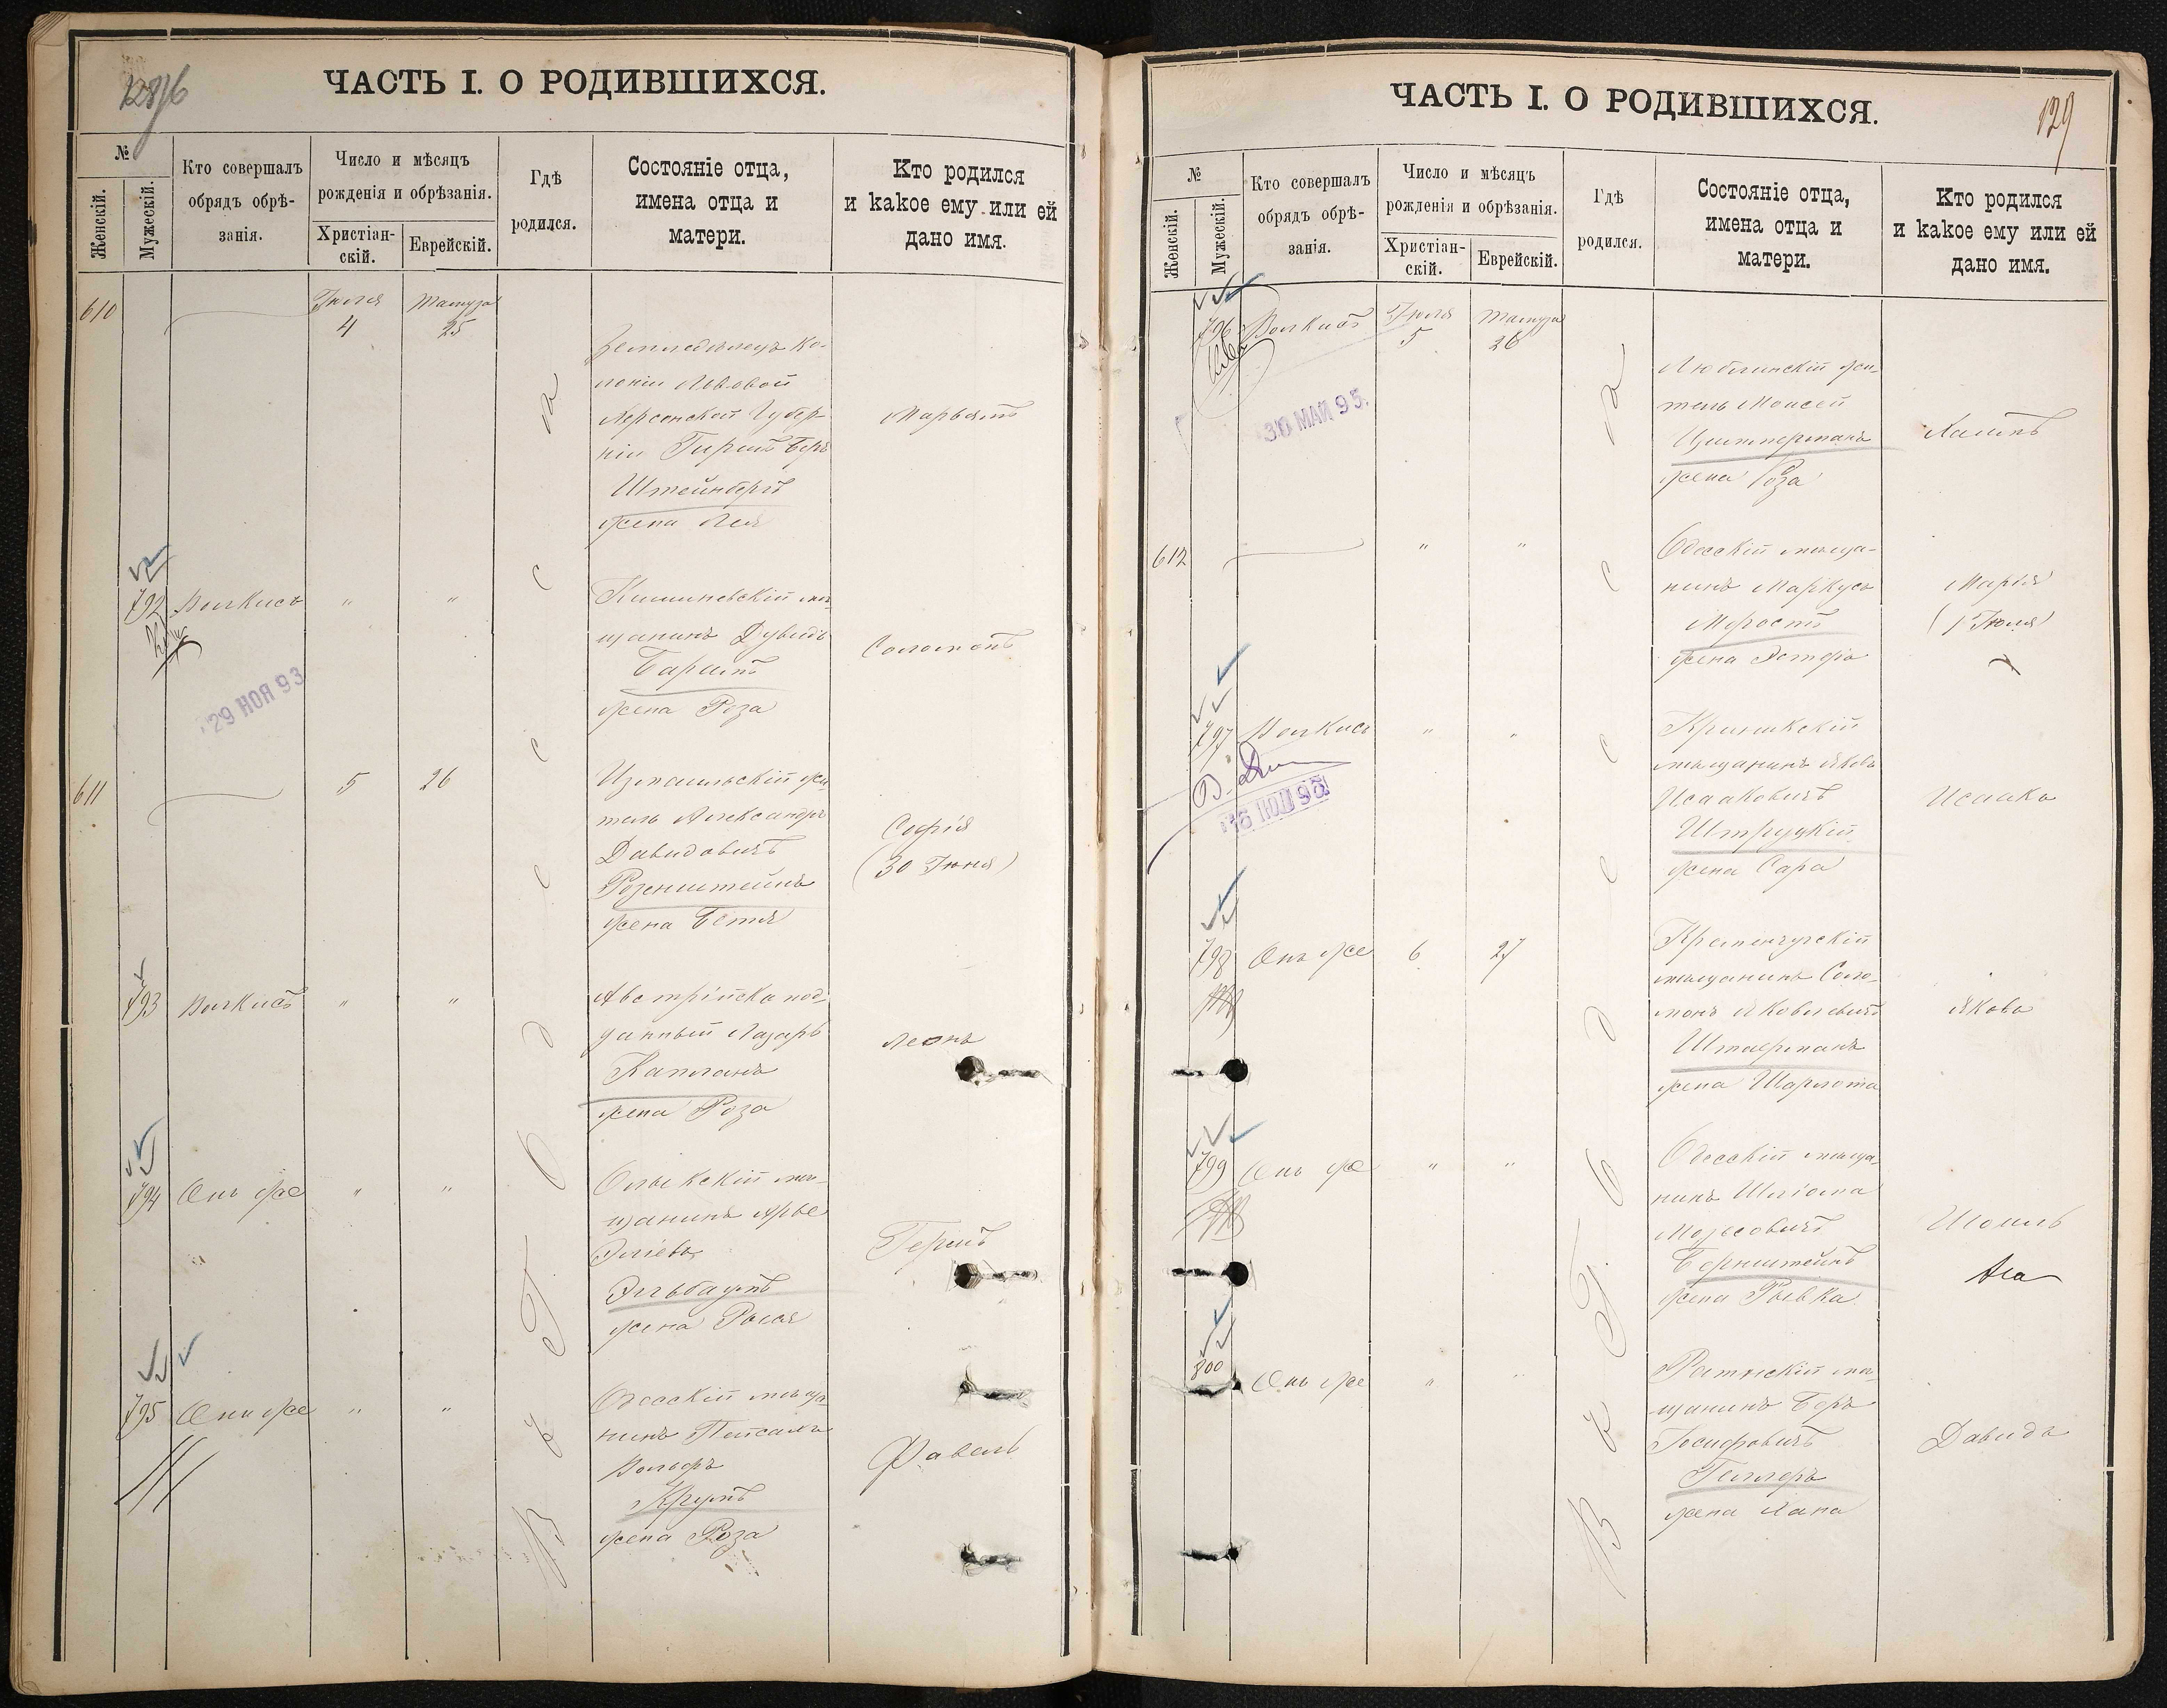 ЧАСТЬ I. О РОДИВШИХСЯ.
№
Женскій.
Мужескій.
Кто совершалъ
обрядъ обрѣ-
занія.
Число и мѣсяцъ
рожденія и обрѣзанія.
Христіан-
скій.
Еврейскій.
Гдѣ
родился.
Состояніе отца,
имена отца и
матери.
Кто родился
и какое ему или ей
дано имя.
въ г. Одессѣ
610
Іюля
4
Тамуза
25
Земледѣлецъ ко-
лоніи Львовой
Херсонской Губер-
ніи Гиршъ Беръ
Штейнбергъ
жена Лея
Марьямъ
792
Волкисъ
"
"
Кишиневскій мѣ-
щанинъ Дувидъ
Барашъ
жена Роза
Соломонъ
29 НОЯ 93
611
5
26
Измаильскій жи-
тель Александръ
Давидовичъ
Розенштейнъ
жена Бетя
Софія
(30 Іюня)
793
Волкисъ
"
"
Австрійско под-
данный Лазарь
Капланъ
жена Роза
Леонъ
794
Онъ же
"
"
Олыкскій мѣ-
щанинъ Арье
Эліевъ
Эльбаумъ
жена Рыся
Гершъ
795
Онъ же
"
"
Одесскій мѣща-
нинъ Пейсахъ
Вольфъ
Крумъ
жена Роза
Фавель
ЧАСТЬ I. О РОДИВШИХСЯ.
129
№
Женскій.
Мужескій.
Кто совершалъ
обрядъ обрѣ-
занія.
Число и мѣсяцъ
рожденія и обрѣзанія.
Христіан-
скій.
Еврейскій.
Гдѣ
родился.
Состояніе отца,
имена отца и
матери.
Кто родился
и какое ему или ей
дано имя.
въ г. Одессѣ
796
Волкисъ
Іюля
5
Тамуза
26
Люблинскій жи-
тель Моисей
Циммерманъ
жена Роза
Хаимъ
30 МАЙ 95.
612
"
"
Одесскій мѣща-
нинъ Маркусъ
жена Эстеръ
Марія
(1 Іюля)
797
Волкисъ
"
"
мѣщанинъ Яковъ
Исааковичъ
Штруцкій
жена Сара
Исаакъ
798
Онъ же
6
27
Кременчугскій
мѣщанинъ Соло-
монъ Яковлевичъ
Штаерманъ
жена Шарлота
Яковъ
799
Онъ же
"
"
Одесскій мѣща-
нинъ Шліома
Мозесовичъ
Бернштейнъ
жена Рывка
Шоиль
800
Онъ же
"
"
Ратнскій мѣ-
щанинъ Беръ
Іосифовичъ
Геллеръ
жена Хана
Давидъ